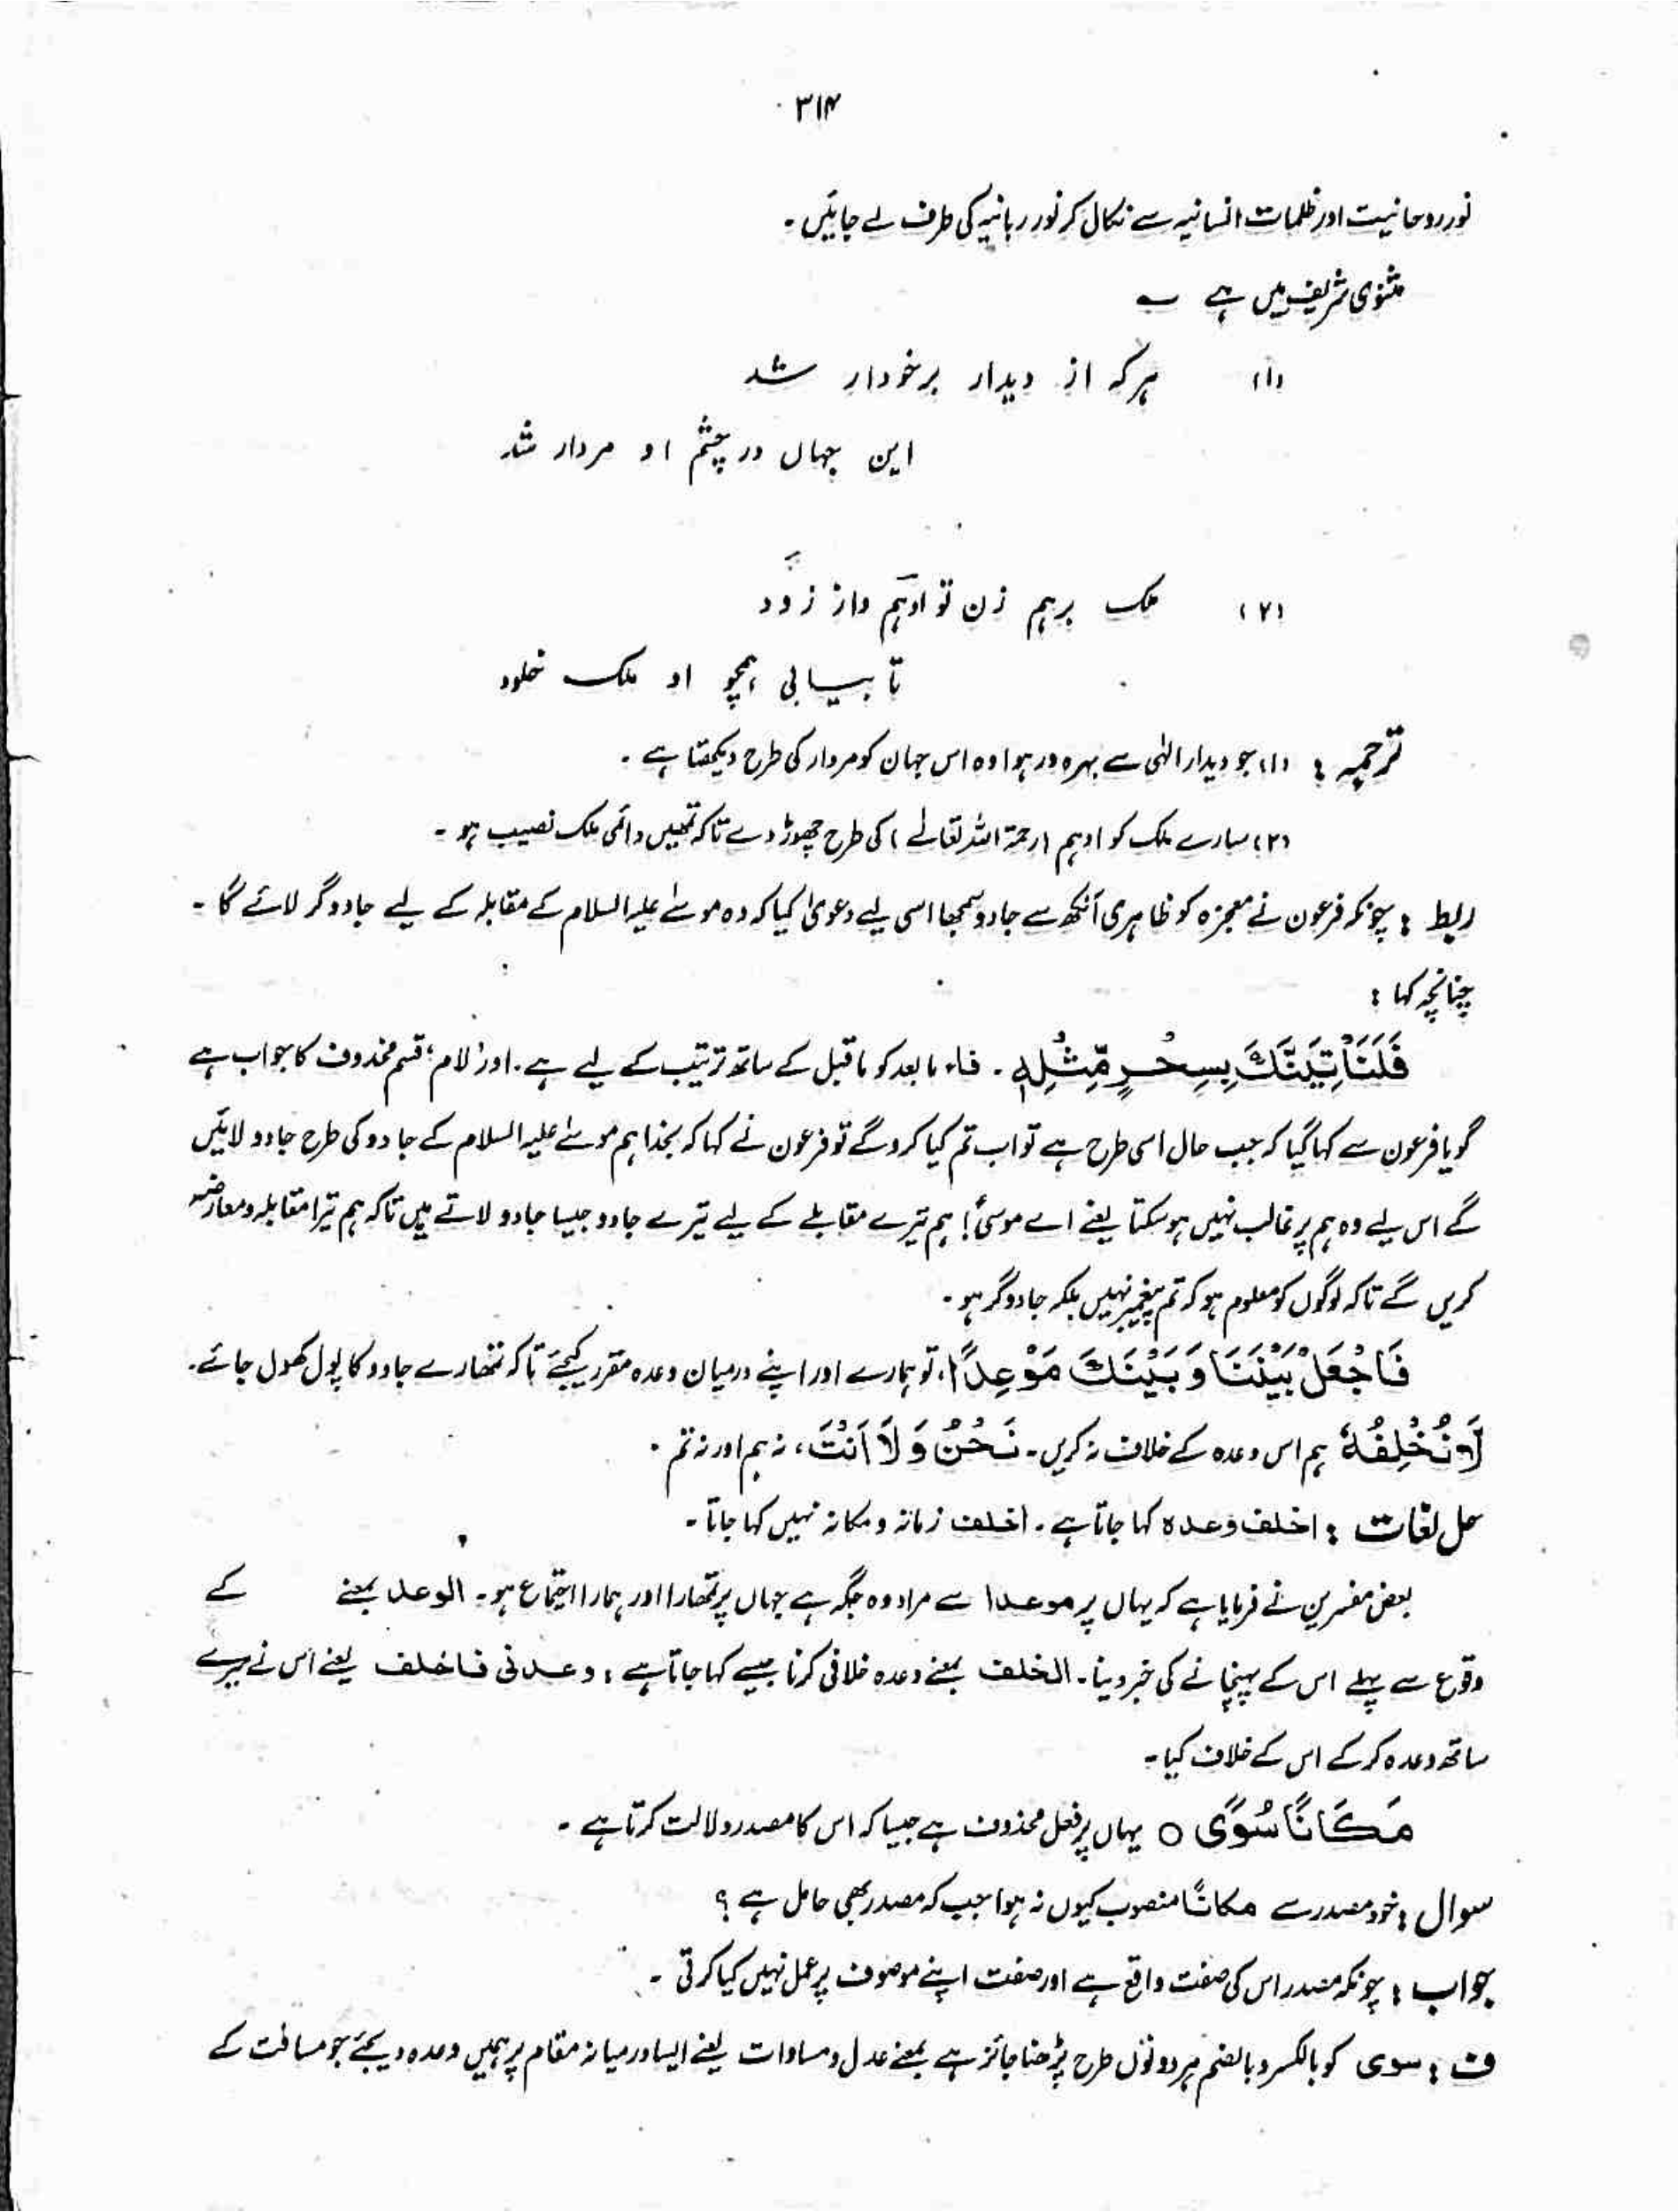 ۳۱۴
نور روحانیت اور ظلمات انسانیہ سے نکال کر نور ربانیہ کی طرف لے جائیں۔
مثنوی شریف میں ہے ؎
(۱) ہر کہ از دیدار برخوردار شد
این جہاں در چشم او مردار شد
(۲) ملک برہم زن تو ادہم وار زود
تا بیابی ہمچو او ملک خلود
ترجمہ : (۱) جو دیدار الٰہی سے بہرہ ور ہوا وہ اس جہان کو مردار کی طرح دیکھتا ہے ۔
(۲) سارے ملک کو ادہم (رحمۃ اللہ تعالےٰ) کی طرح چھوڑ دے تاکہ تمھیں دائمی ملک نصیب ہو ۔
ربط : چونکہ فرعون نے معجزہ کو ظاہری آنکھ سے جادو سمجھا اسی لیے دعویٰ کیا کہ وہ موسےٰ علیہ السلام کے مقابلہ کے لیے جادوگر لائے گا ۔
چنانچہ کہا :
فَلَنَاْتِيَنَّكَ بِسِحْرٍ مِّثْلِهٖ ۔ فاء مابعد کو ماقبل کے ساتھ ترتیب کے لیے ہے ۔ اور ُلام، قسم محذوف کا جواب ہے
گویا فرعون سے کہا گیا کہ جب حال اسی طرح ہے تو اب تم کیا کرو گے تو فرعون نے کہا کہ بخدا ہم موسےٰ علیہ السلام کے جادو کی طرح جادو لائیں
گے اس لیے وہ ہم پر غالب نہیں ہو سکتا یعنے اے موسیٰؑ! ہم تیرے مقابلے کے لیے تیرے جادو جیسا جادو لاتے ہیں تاکہ ہم تیرا مقابلہ و معارضہ
کریں گے تاکہ لوگوں کو معلوم ہو کہ تم پیغمبر نہیں بلکہ جادوگر ہو ۔
فَاجْعَلْ بَيْنَنَا وَبَيْنَكَ مَوْعِدًا، تو ہمارے اور اپنے درمیان وعدہ مقرر کیجئے تاکہ تمھارے جادو کا پول کھول جائے۔
لَّا نُخْلِفُهٗ ہم اس وعدہ کے خلاف نہ کریں ۔ نَحْنُ وَلَا اَنْتَ، نہ ہم اور نہ تم ۔
حل لغات : اخلف وعدہ کہا جاتا ہے ۔ اخلف زمانہ و مکانہ نہیں کہا جاتا ۔
بعض مفسرین نے فرمایا ہے کہ یہاں پر موعدا سے مراد وہ جگہ ہے جہاں پر تمھارا اور ہمارا اجتماع ہو ۔ الوعد بمعنے کے
وقوع سے پہلے اس کے پہنچانے کی خبر دینا ۔ الخلف بمعنے وعدہ خلافی کرنا جیسے کہا جاتا ہے : وعدنی فاخلف یعنے اس نے میرے
ساتھ وعدہ کر کے اس کے خلاف کیا ۔
مَكَانًا سُوًى ○ یہاں پر فعل محذوف ہے جیسا کہ اس کا مصدر دلالت کرتا ہے ۔
سوال : خود مصدر سے مکانًا منصوب کیوں نہ ہوا جب کہ مصدر بھی عامل ہے ؟
جواب : چونکہ مصدر اس کی صفت واقع ہے اور صفت اپنے موصوف پر عمل نہیں کیا کرتی ۔
ف : سوی کو بالکسر و بالضم ہر دونوں طرح پڑھنا جائز ہے بمعنے عدل و مساوات یعنے ایسا درمیانہ مقام پر ہمیں وعدہ دیجئے جو مسافت کے